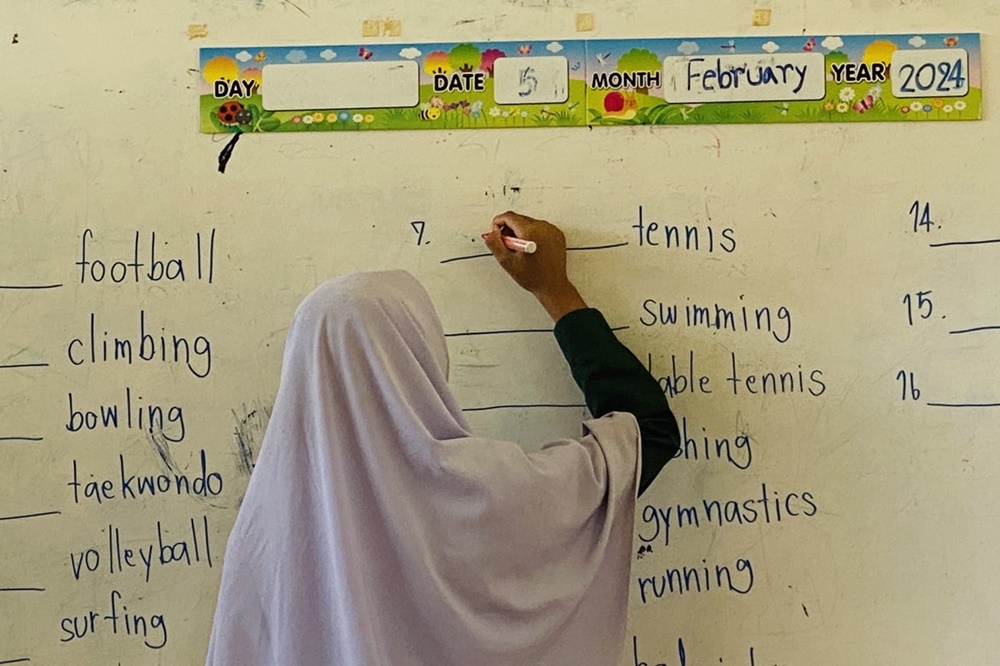 DAY DATE 5 MONTH February YEAR 2024
football
climbing
bowling
taekwondo
volleyball
surfing
7. tennis
swimming
table tennis
gymnastics
running
14.
15.
16